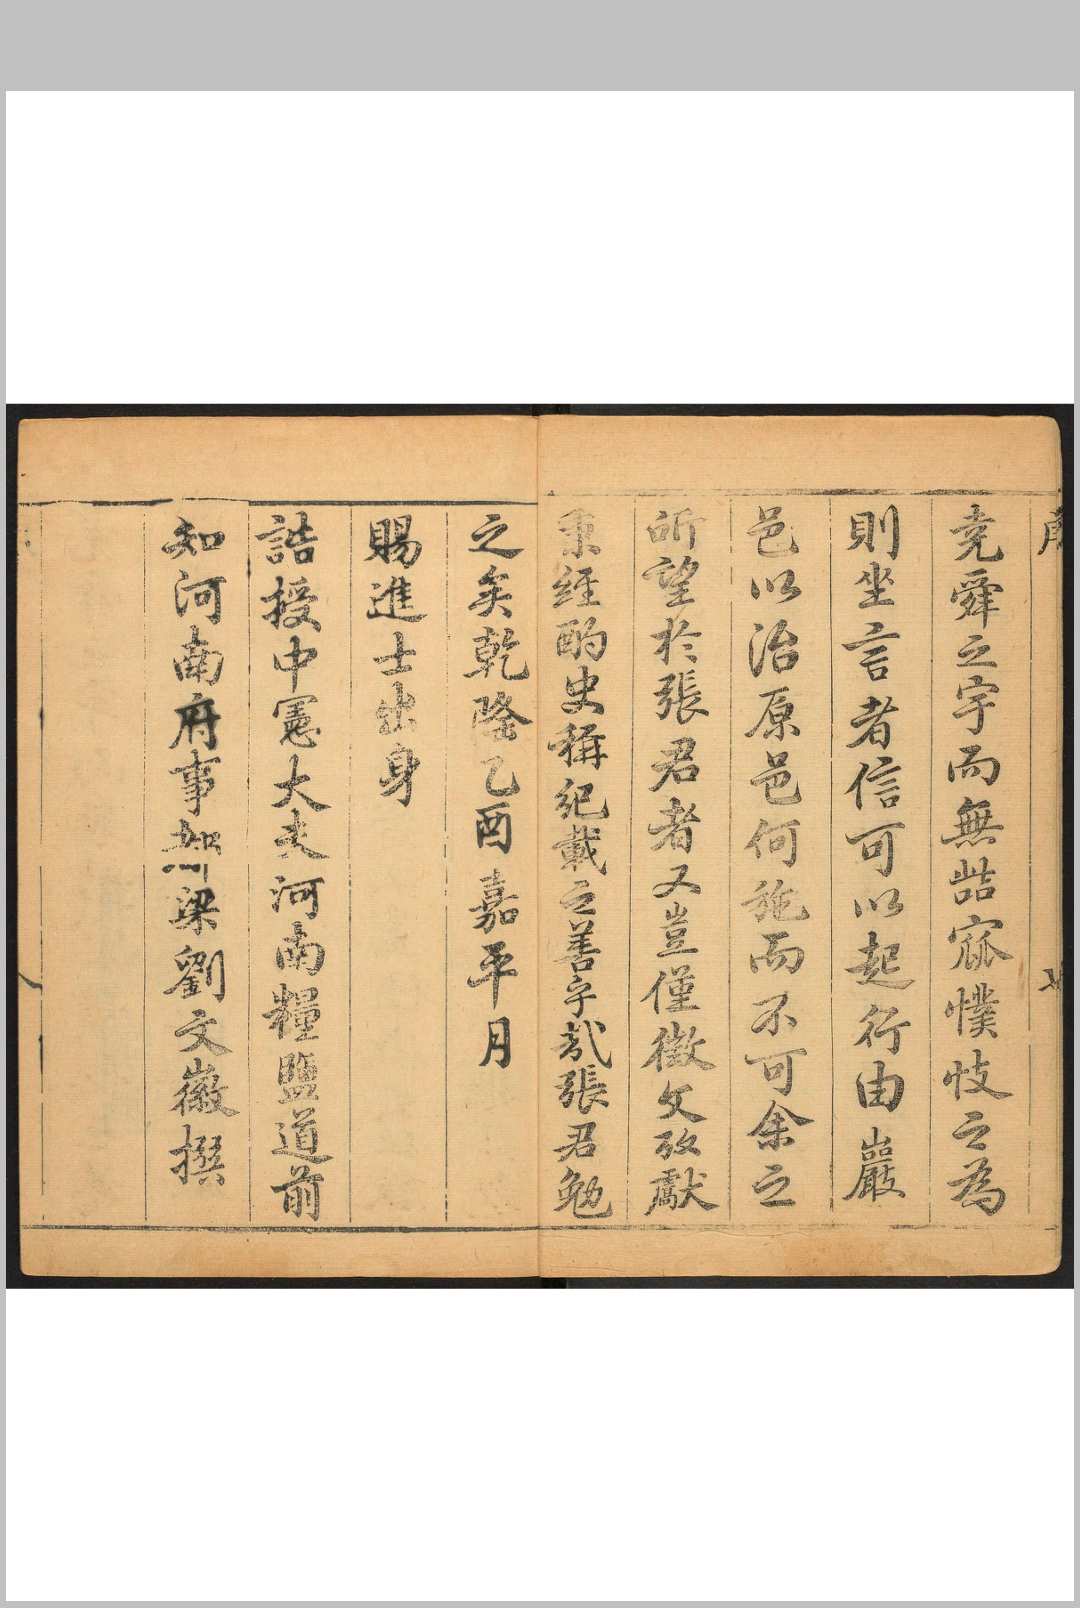 堯舜之宇而無呰窳懻忮之為
則坐言者信可以起行由巖
邑以治原邑何施而不可余之
所望於張君者又豈僅徵文攷獻
秉經酌史稱紀載之善乎哉張君勉
之矣乾隆乙酉嘉平月
賜進士出身
誥授中憲大夫河南糧鹽道前
知河南府事 梁劉文徽撰